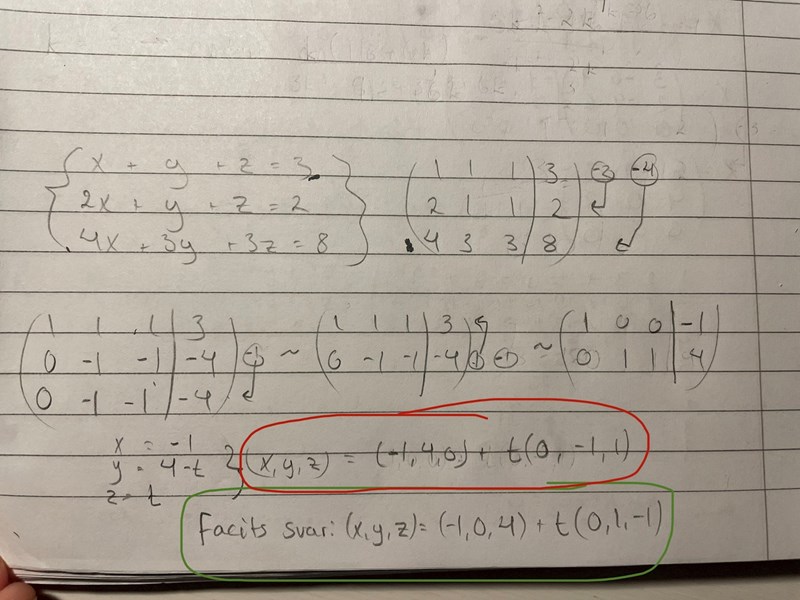 x + y + z = 3
2x + y + z = 2
4x + 3y + 3z = 8
1 1 1 | 3 -3 -4
2 1 1 | 2
4 3 3 | 8
1 1 1 | 3
0 -1 -1 | -4 -1 ~
0 -1 -1 | -4
1 1 1 | 3
0 -1 -1 | -4 ~
1 0 0 | -1
0 1 1 | 4
x = -1
y = 4-t
z = t
(x,y,z) = (-1,4,0) + t(0,-1,1)
Facits svar: (x,y,z)= (-1,0,4) + t(0,1,-1)